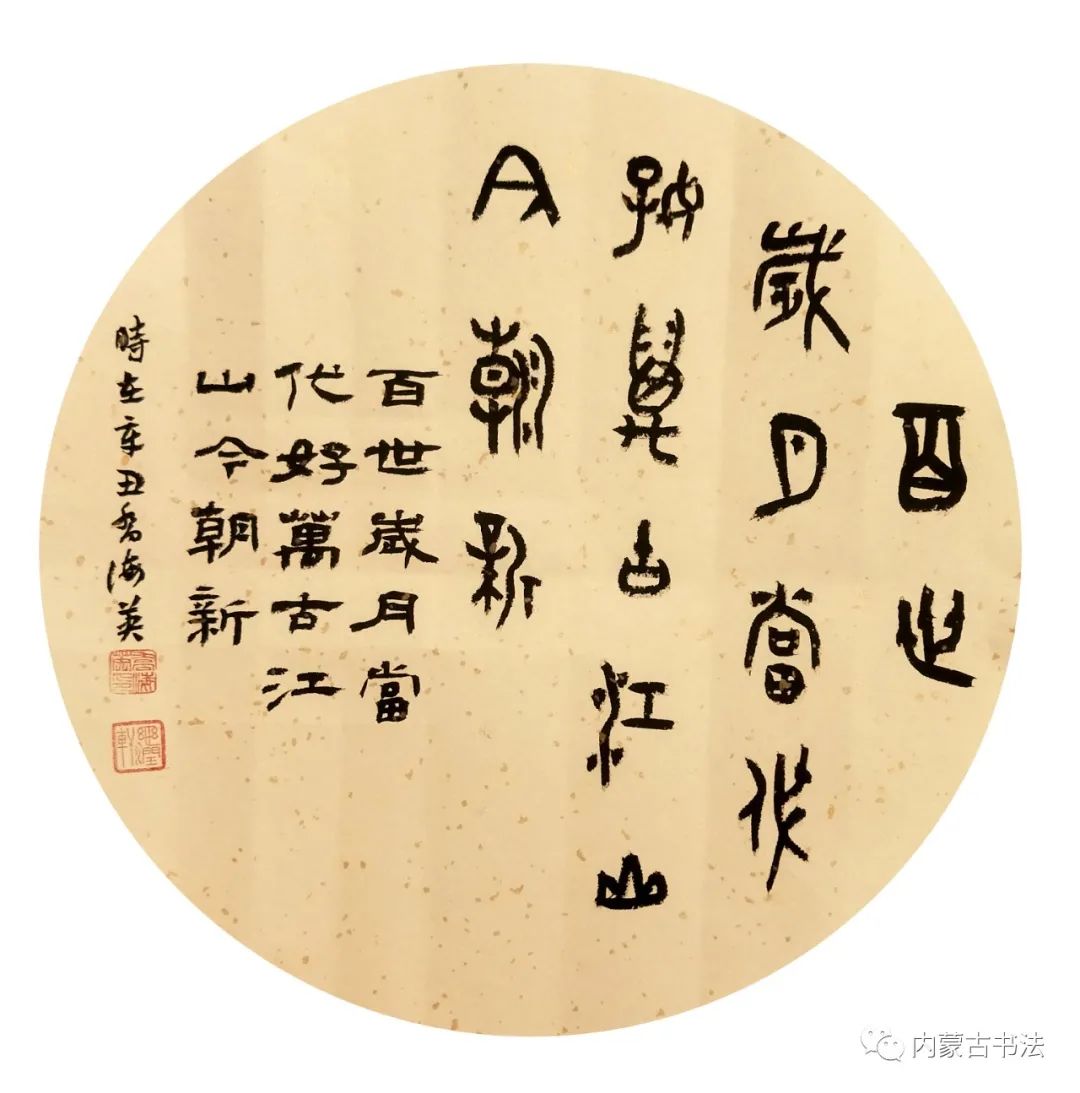 百世
歲月當代
好萬古江山
今朝新
百世歲月當
代好萬古江
山今朝新
時在辛丑秀海英
内蒙古书法